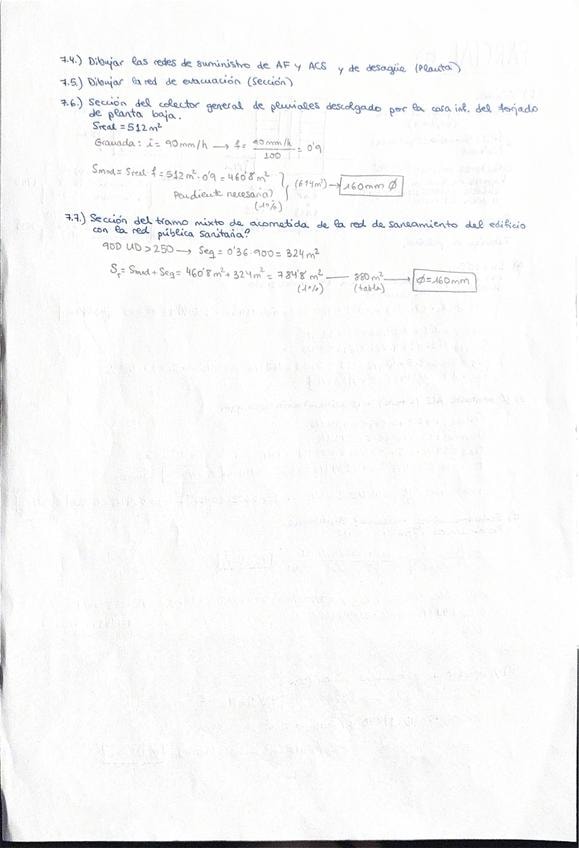 7.4.) Dibujar las redes de suministro de AF y ACS y de desagüe (Planta)
7.5.) Dibujar la red de evacuación (Sección)
7.6.) Sección del colector general de pluviales descolgado por la cara inf. del forjado
de planta baja.
Sreal = 512 m²
Granada: i = 90 mm/h → f = 90 mm/h / 100 = 0'9
Smod = Sreal · f = 512 m² · 0'9 = 460'8 m²
Pendiente necesaria?
(1%)
(614 m²) → 160 mm Ø
7.7.) Sección del tramo mixto de acometida de la red de saneamiento del edificio
con la red pública sanitaria?
900 UD > 250 → Seq = 0'36 · 900 = 324 m²
ST = Smod + Seq = 460'8 m² + 324 m² = 784'8 m² — 880 m² → Ø = 160 mm
(1%) (tabla)